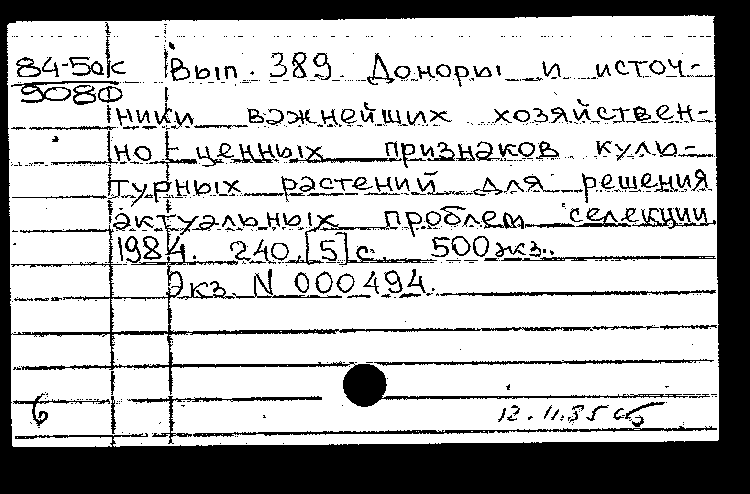 84-5ок Вып. 389. Доноры и источ-
9080 ники важнейших хозяйствен-
но-ценных признаков куль-
турных растений для решения
актуальных проблем селекции.
1984. 240,[5]с. 500экз..
Экз. N 000494.
6 12.11.85